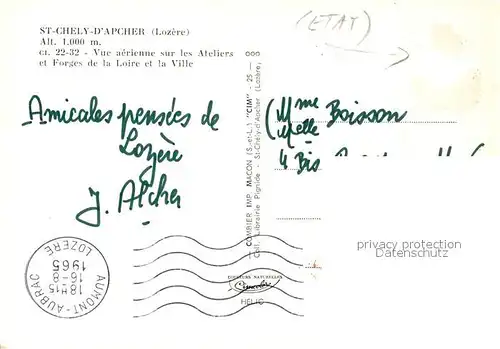 ST-CHELY-D'APCHER (Lozère)
Alt. 1.000 m.
ct. 22-32 - Vue aérienne sur les Ateliers
et Forges de la Loire et la Ville
(ETAT)
Amicales pensées de
Lozère
J.
Mme Boisson
Melle
4 Bis
COMBIER IMP. MACON (S.-et-L.) "CIM" - 25 -
Coll. Librairie Pignide - St-Chély-d'Apcher (Lozère)
AUMONT-AUBRAC
LOZERE
18H15
16-8
1965
COULEURS NATURELLES
HELIO
privacy protection
Datenschutz